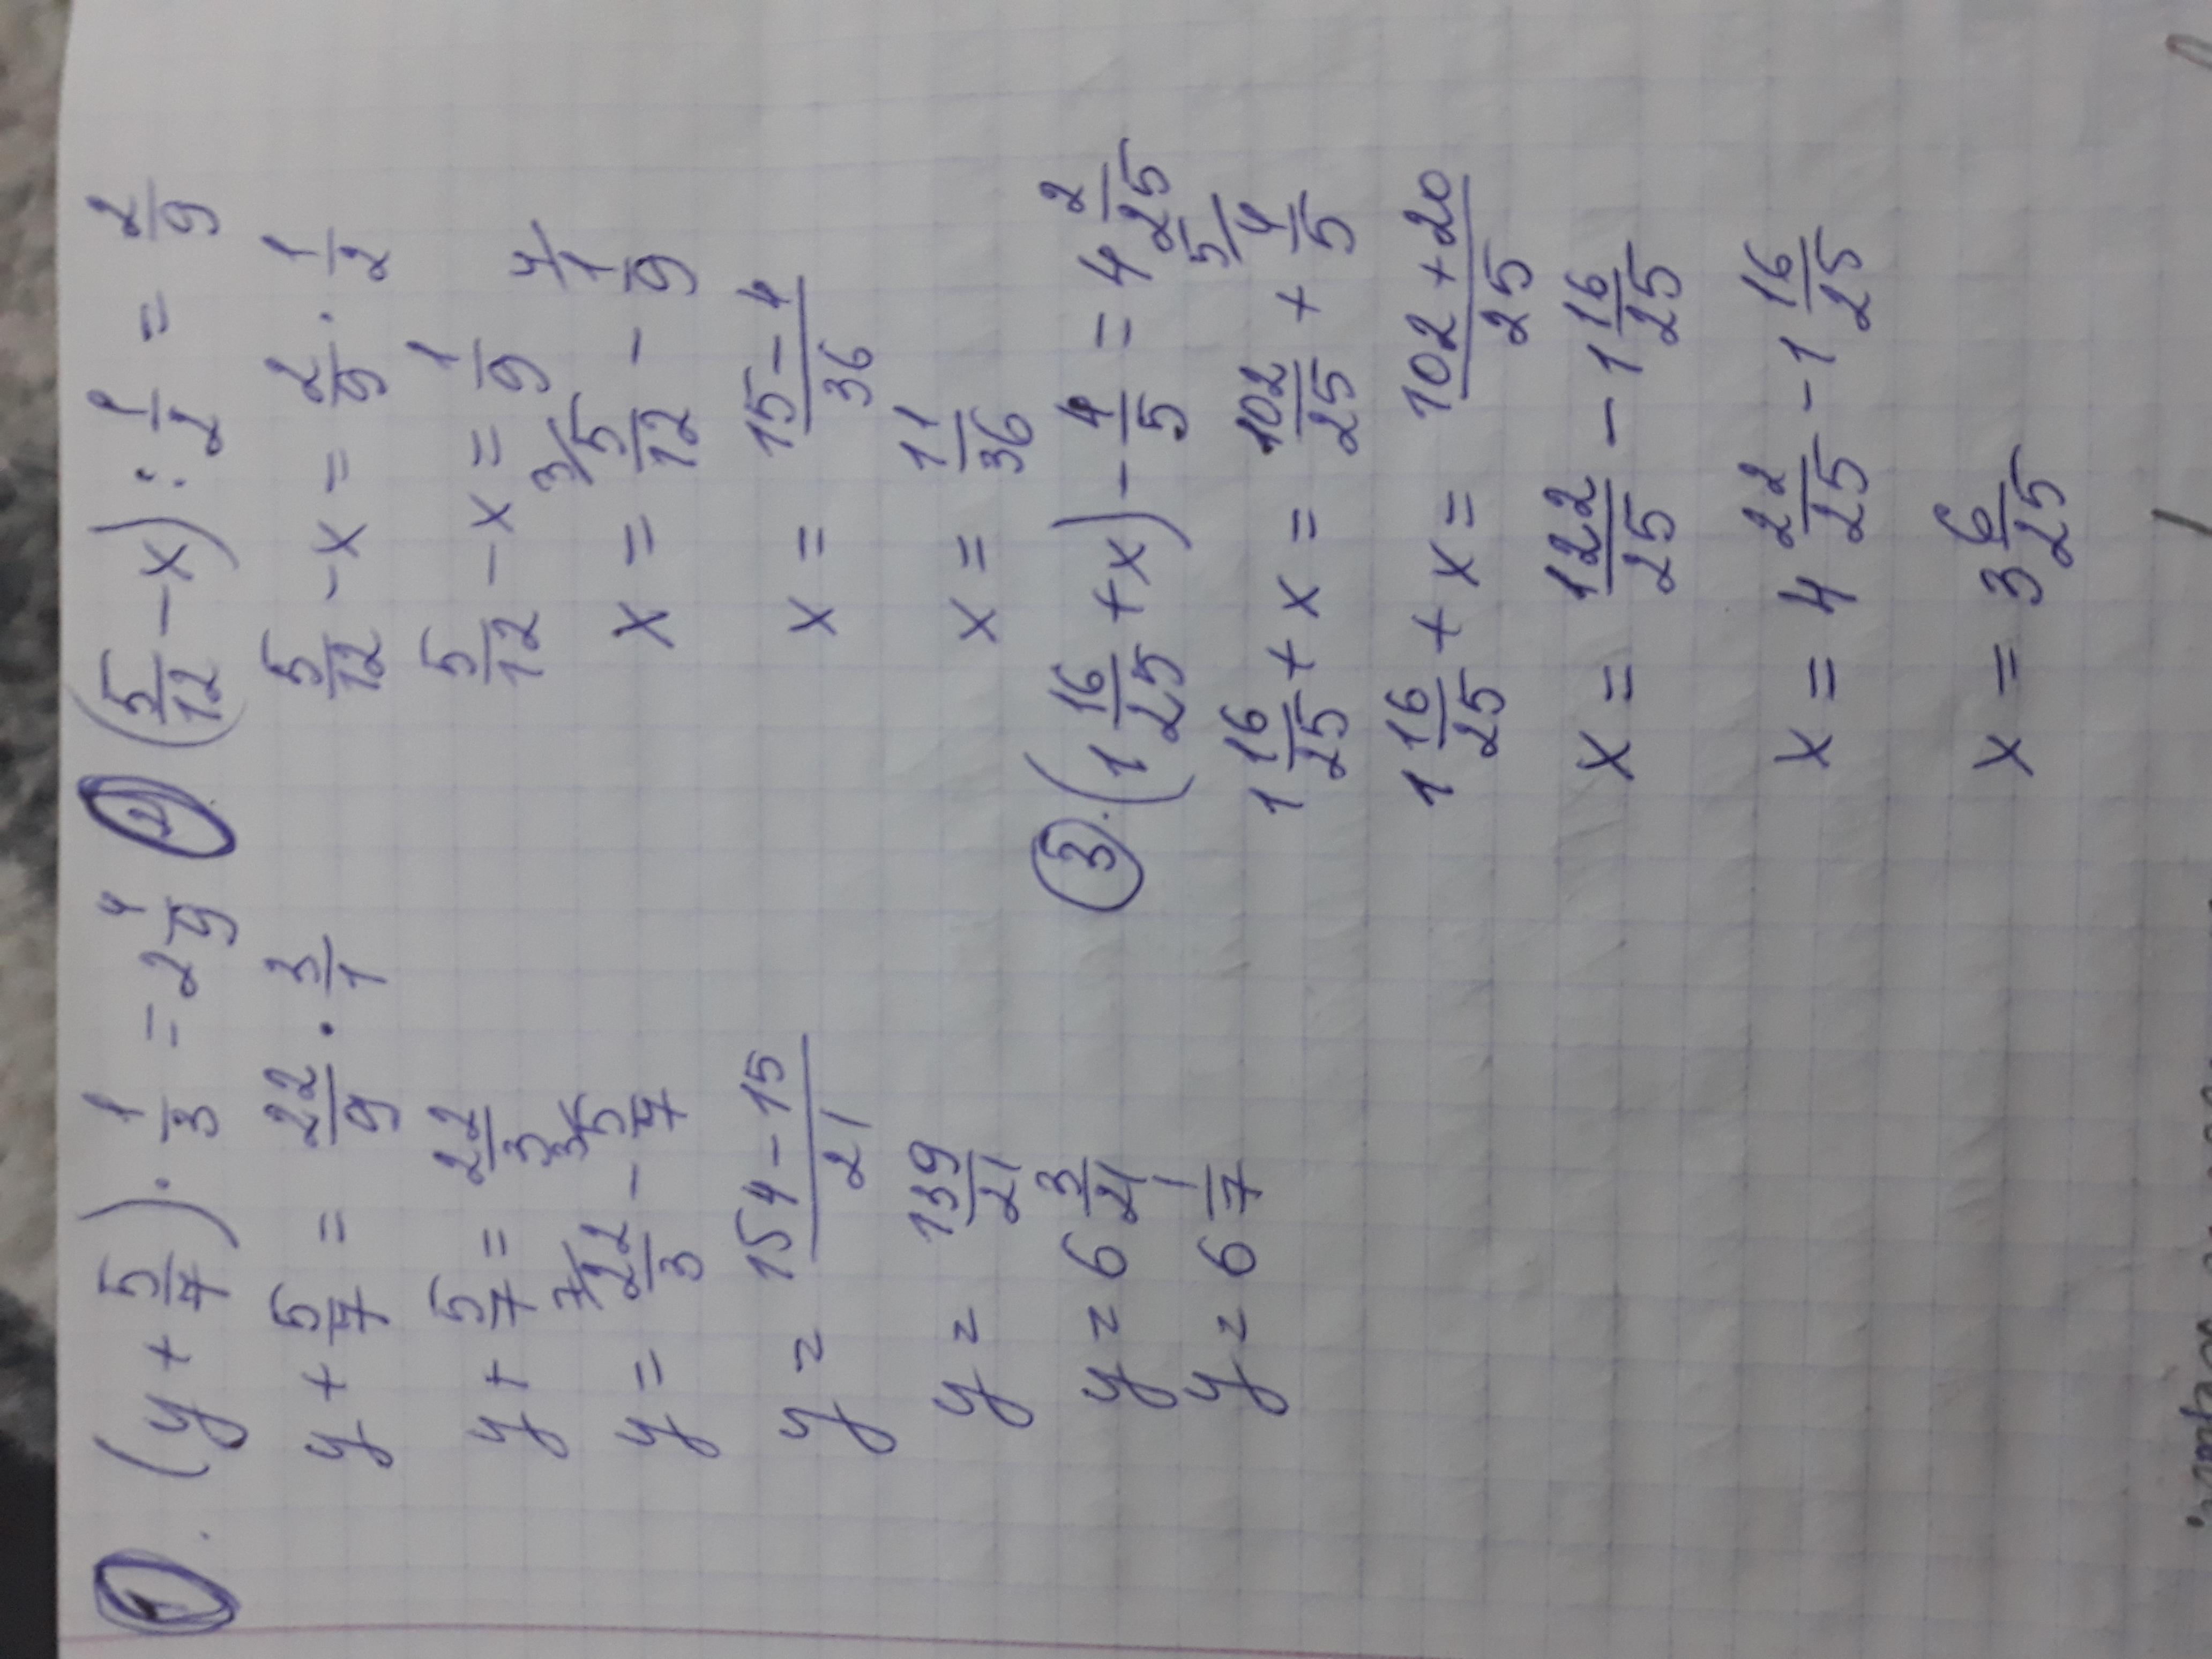 1. (y + 5/7) · 1/3 = 2 4/9
y + 5/7 = 22/9 · 3/1
y + 5/7 = 22/3
y = 7/ 22/3 - 3/ 5/7
y = (154 - 15)/21
y = 139/21
y = 6 3/21
y = 6 1/7
2 (5/12 - x) : 1/2 = 2/9
5/12 - x = 2/9 · 1/2
5/12 - x = 1/9
x = 3/ 5/12 - 4/ 1/9
x = (15 - 4)/36
x = 11/36
3. (1 16/25 + x) - 4/5 = 4 2/25
1 16/25 + x = 102/25 + 5/ 4/5
1 16/25 + x = (102 + 20)/25
x = 122/25 - 1 16/25
x = 4 22/25 - 1 16/25
x = 3 6/25